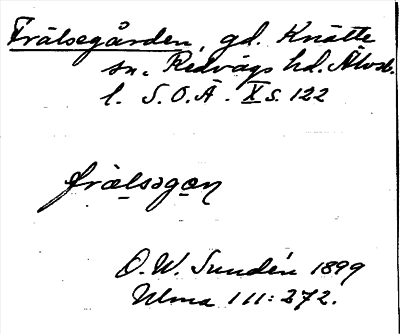 Frälsegården, gd. Knätte
sn. Redvägs hd. Älvsb.
l. S.O.Ä. X s. 122
frälsəgən
O. W. Sundén 1899
Ulma 111:272.